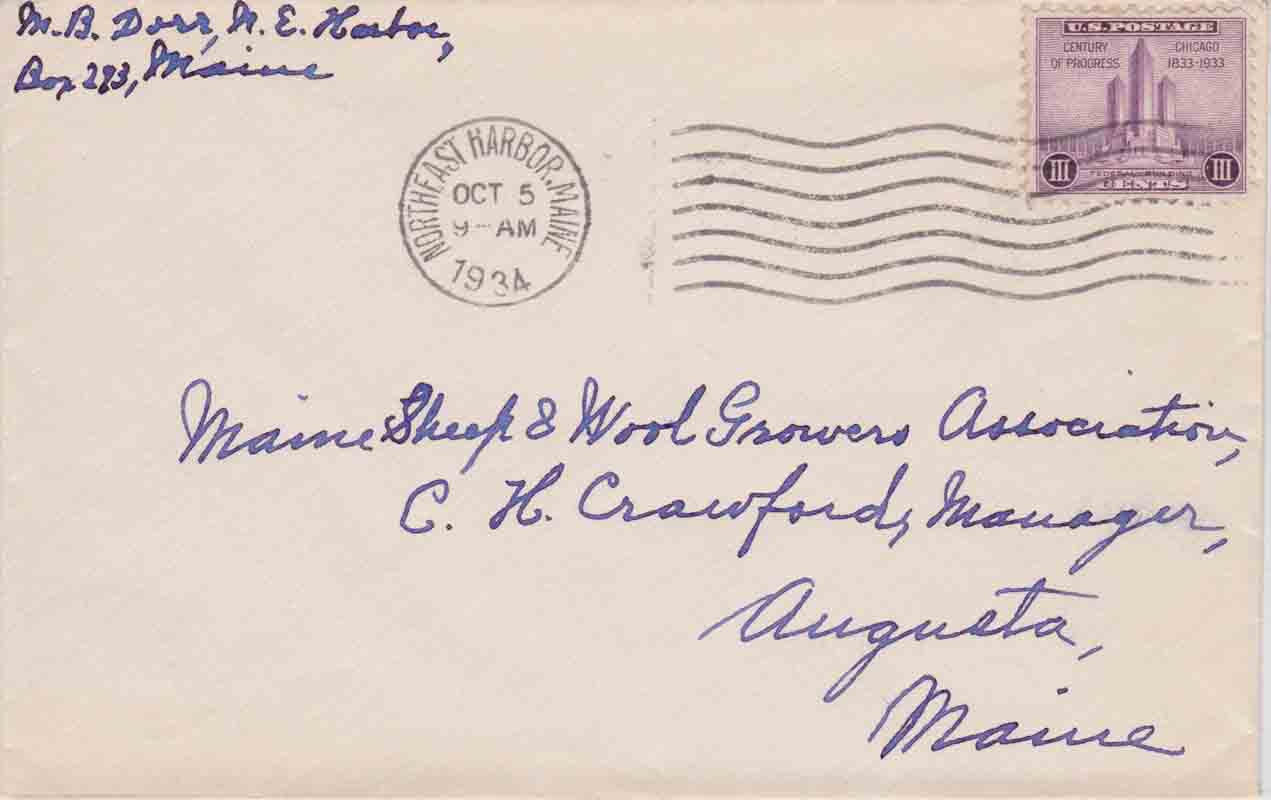 M. B. Dorr, N. E. Harbor,
Box 273, Maine
U.S. POSTAGE
CENTURY OF PROGRESS
CHICAGO 1833-1933
FEDERAL BUILDING
III CENTS III
NORTHEAST HARBOR, MAINE
OCT 5
9-AM
1934
Maine Sheep & Wool Growers Association,
C. H. Crawford, Manager,
Augusta,
Maine